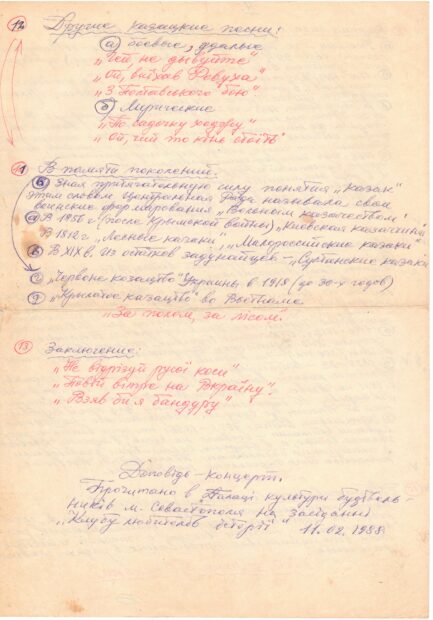 12 Другие казацкие песни:
а) боевые, удалые
„Гей, не дивуйте"
„Ой, виїхав Ревуха"
„З Полтавського бою"
б) Лирические
„По садочку ходжу"
„Ой, чий то кінь стоїть"
11 В памяти поколений.
Зная притягательную силу понятия „казак"
этим словом Центральная Рада называла свои
воинские формирования „Вольным казачеством"
а) В 1856 г. после Крымской войны „Киевская казатчина"
В 1812 г. „Лесные казаки", „Малороссийские казаки"
В XIX в. Из остатков задунайцев – „Султанские казаки
„Червоне козацтво" Украины в 1918 (до 30-х годов)
„Крылатое казацтво" во Вьетнаме
„За полем, за лісом".
13 Заключение:
„Не відрізуй русої коси"
„Повій вітре на Вкраїну".
„Взяв би я бандуру"
Доповідь – концерт.
Прочитано в Палаці культури будівель-
ників м. Севастополя на засіданні
„Клубу любителів історії" 11.02.1988